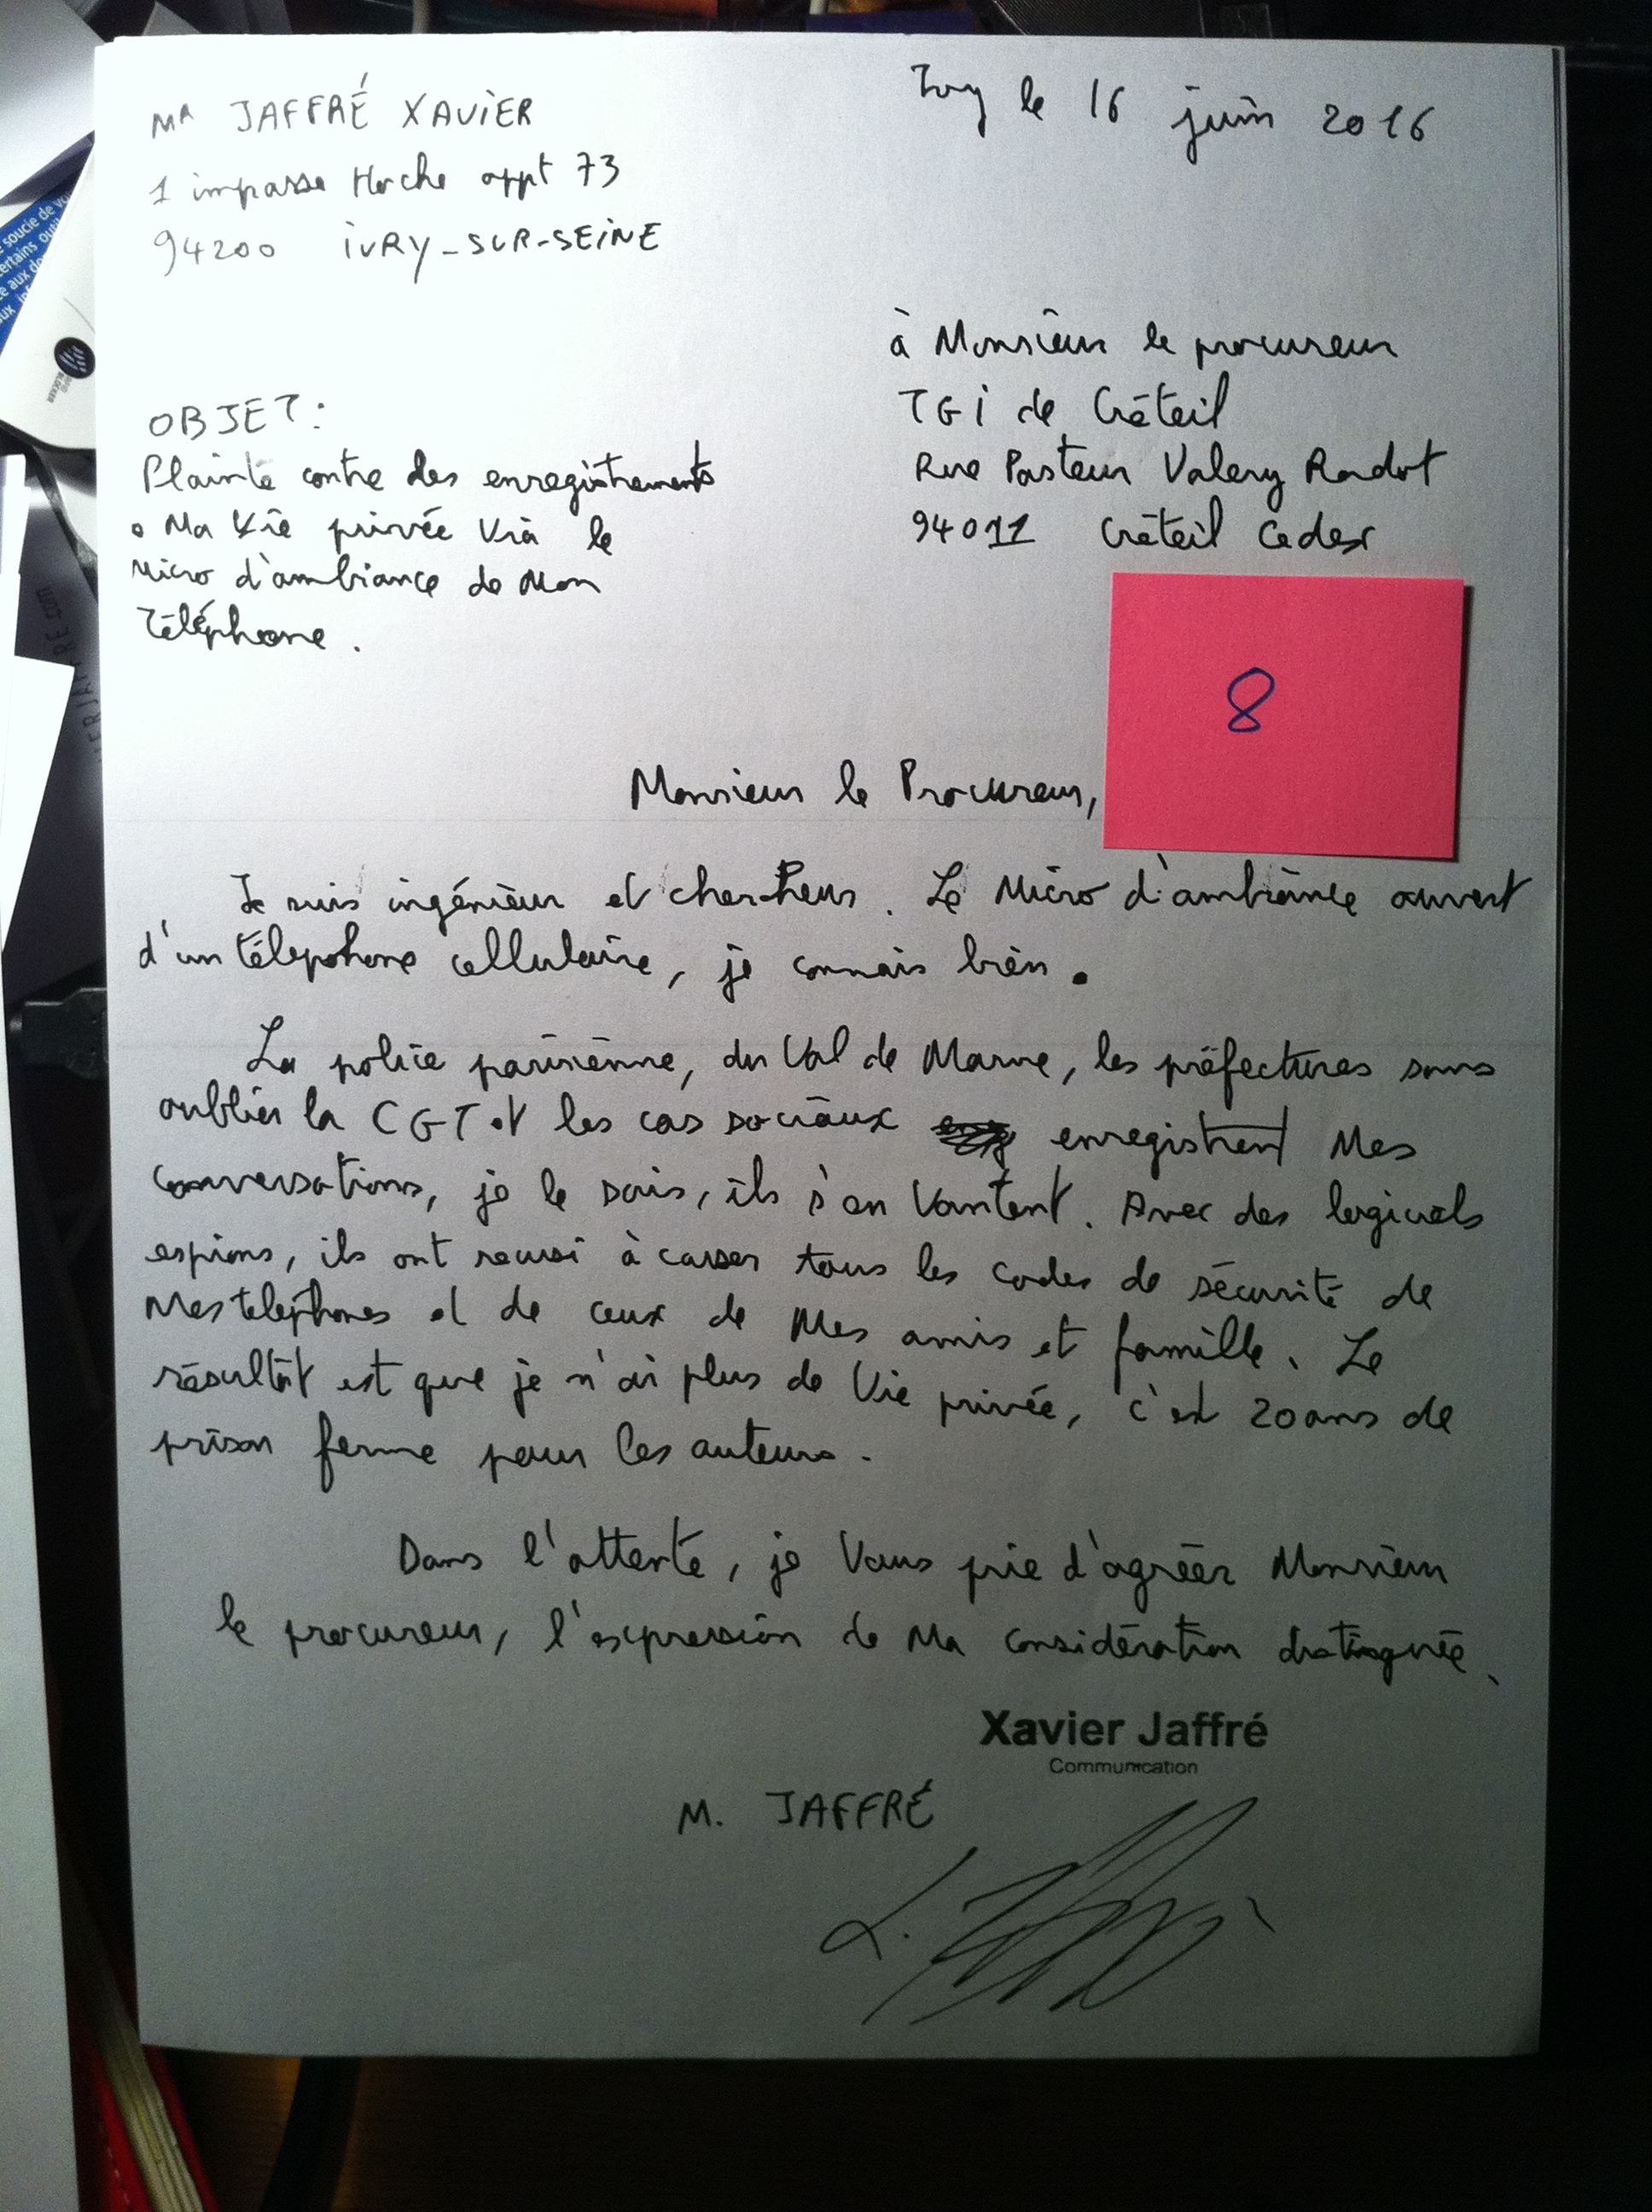 MR JAFFRÉ XAVIER
1 impasse Hoche appt 73
94200 IVRY-SUR-SEINE
Ivry le 16 juin 2016
à Monsieur le procureur
TGI de Créteil
Rue Pasteur Valery Radot
94011 Créteil Cedex
OBJET:
Plainte contre des enregistrements
Ma vie privée via le
Micro d'ambiance de Mon
Téléphone.
8
Monsieur le Procureur,
Je suis ingénieur et chercheur. Le Micro d'ambiance ouvert
d'un télephone cellulaire, je connais bien.
La police parisienne, du Val de Marne, les préfectures sans
oublier la CGT et les cas sociaux enregistrent Mes
conversations, je le sais, ils s'en Vantent. Avec des logiciels
espions, ils ont reussi à casser tous les codes de sécurité de
Mes telephones et de ceux de Mes amis et famille. Le
résultat est que je n'ai plus de Vie privée, c'est 20 ans de
prison ferme pour les auteurs.
Dans l'attente, je Vous prie d'agréer Monsieur
le procureur, l'expression de Ma considération distinguée.
Xavier Jaffré
Communication
M. JAFFRÉ